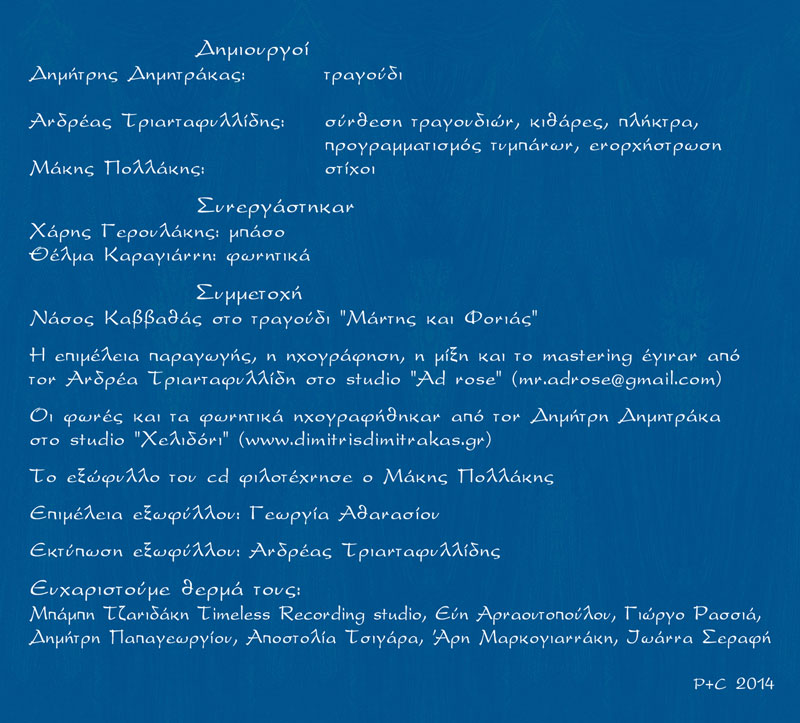 Δημιουργοί
Δημήτρης Δημητράκας: τραγούδι
Ανδρέας Τριανταφυλλίδης: σύνθεση τραγουδιών, κιθάρες, πλήκτρα,
προγραμματισμός τυμπάνων, ενορχήστρωση
Μάκης Πολλάκης: στίχοι
Συνεργάστηκαν
Χάρης Γερουλάκης: μπάσο
Θέλμα Καραγιάννη: φωνητικά
Συμμετοχή
Νάσος Καββαθάς στο τραγούδι "Μάρτης και Φονιάς"
Η επιμέλεια παραγωγής, η ηχογράφηση, η μίξη και το mastering έγιναν από
τον Ανδρέα Τριανταφυλλίδη στο studio "Ad rose" (mr.adrose@gmail.com)
Οι φωνές και τα φωνητικά ηχογραφήθηκαν από τον Δημήτρη Δημητράκα
στο studio "Χελιδόνι" (www.dimitrisdimitrakas.gr)
Το εξώφυλλο του cd φιλοτέχνησε ο Μάκης Πολλάκης
Επιμέλεια εξωφύλλου: Γεωργία Αθανασίου
Εκτύπωση εξωφύλλου: Ανδρέας Τριανταφυλλίδης
Ευχαριστούμε θερμά τους:
Μπάμπη Τζανιδάκη Timeless Recording studio, Εύη Αρναουτοπούλου, Γιώργο Ρασσιά,
Δημήτρη Παπαγεωργίου, Αποστολία Τσιγάρα, Άρη Μαρκογιαννάκη, Ιωάννα Σεραφή
P+C 2014